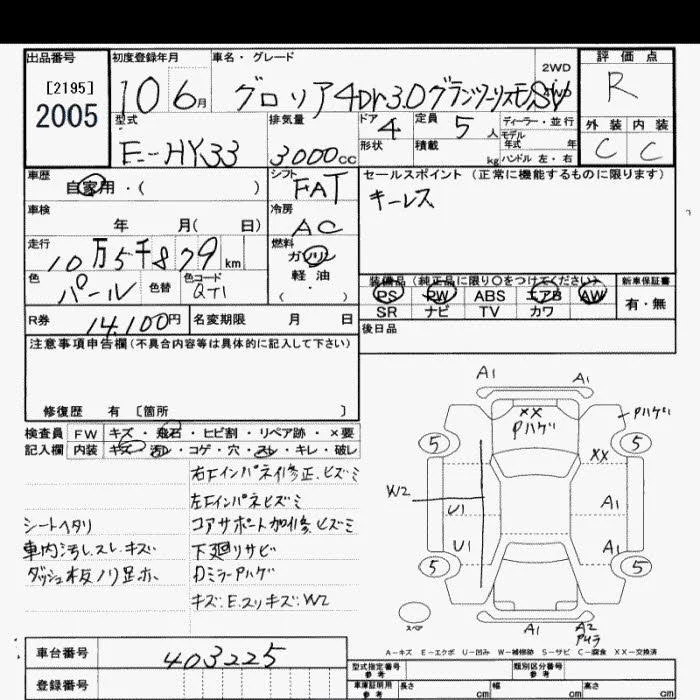 出品番号
[2195]
2005
初度登録年月
10 6月
車名・グレード
グロリア 4Dr 3.0 グランツーリスモSV
2WD
4WD
評価点
R
外装 内装
C C
型式
E-HY33
排気量
3000cc
ドア 4
形状
定員 5 人
積載 kg
ディーラー・並行
モデル年式 年
ハンドル 左・右
車歴
自家用・( )
シフト
FAT
セールスポイント (正常に機能するものに限ります)
キーレス
車検
年 月( 日)
冷房
AC
走行
10万5千879km
燃料
ガソリン
軽・油
・( )
色
パール
色替
色コード
QT1
装備品 (純正品に限り〇をつけてください)
PS PW ABS エアB AW
SR ナビ TV カワ
新車保証書
有・無
R券 14,100円
名変期限 月 日
後日品
注意事項申告欄(不具合内容等は具体的に記入して下さい)
修復歴 有 [箇所 ]
検査員 FW キズ・飛石・ヒビ割・リペア跡・×要
記入欄 内装 キズ・汚レ・コゲ・穴・スレ・キレ・破レ
右Fインパネ修正、ヒズミ
左Fインパネヒズミ
シートヘタリ
コアサポート加修、ヒズミ
車内汚レ、スレ、キズ
下廻リサビ
ダッシュ板ノリ足ホ、
Dミラー Pハゲ
キズ・E・スリキズ・W2
A1
A1
XX
Pハゲ
Pハゲ
5
5
XX
W2
U1
A1
U1
A1
5
5
スペア
A1
A2
A-キズ E-エクボ U-凹み W-補修跡 S-サビ C-腐食 XX-交換済
車台番号
403225
登録番号
型式指定番号 参考
類別区分番号 参考
車庫証明用 参考
長さ cm
幅 cm
高さ cm